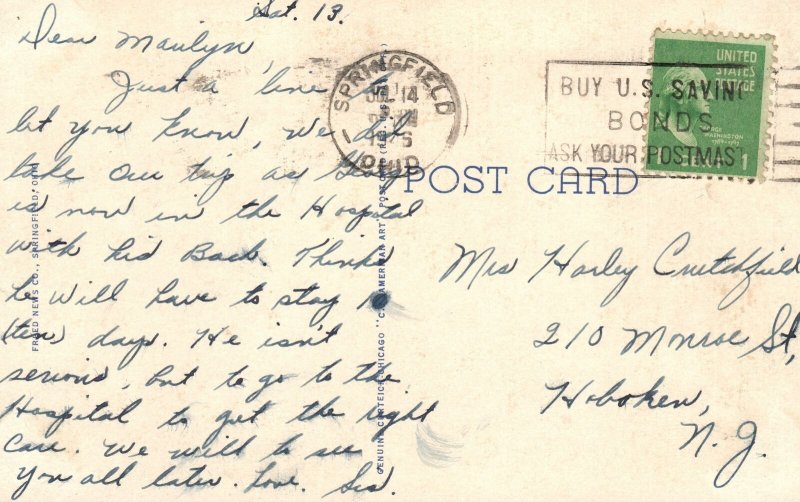 Sat. 13.
Dear Marilyn,
Just a line to
let you know, we did
take our trip as
is now in the Hospital
with his Back. Thinks
he will have to stay
(ten) days. He isn't
serious, but to go to the
Hospital to get the right
care. We will to see
you all later. Love. Sis.
FREED NEWS CO., SPRINGFIELD, OHIO
GENUINE CURTEICH-CHICAGO "C. T. AMERICAN ART" POST CARD (REG. U. S.
SPRINGFIELD
JUL 14
OHIO
BUY U.S. SAVING
BONDS
ASK YOUR POSTMAST
UNITED
STATES
POSTAGE
GEORGE
WASHINGTON
1
POST CARD
Mrs Harley Crutchfield
210 Monroe St,
Hoboken,
N. J.